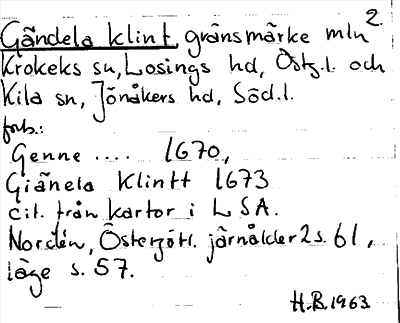 2
Gändela klint, gränsmärke mln
Krokeks sn, Losings hd, Östg.l. och
Kila sn, Jönåkers hd, Söd.l.
forb.:
Genne .... 1670,
Giänela Klintt 1673
cit. från kartor i LSA.
Nordén, Östergötl. järnålder 2 s. 61,
läge s. 57.
H.B. 1963